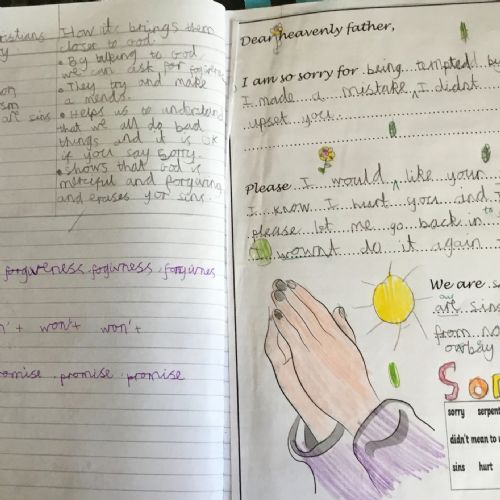 How it brings them
closer to God.
• By talking to God
we can ask for forgiveness
• They try and make
a mends.
• Helps us to understand
that we all do bad
things and it is OK
if you say sorry.
• shows that God is
merciful and forgiving
and erases your sins.
forgiveness forgiveness forgivnes
won't won't
promise promise promise
Dear heavenly father,
I am so sorry for being tempted by
I made a mistake, I didnt
upset you.
Please I would like your
I know I hurt you and
please let me go back in to
I wownt do it again
We are
all sins
from no
orbay
Sor
sorry serpent
didn't mean to
sins hurt